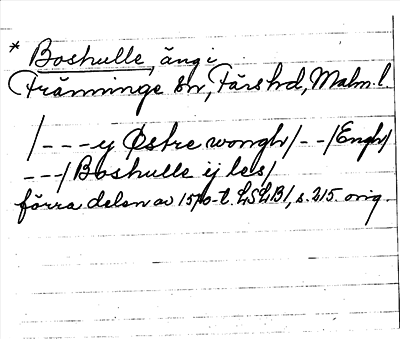 * Boshulle, äng i
Tränninge sn, Färs hd, Malm. l.
/---ij Østre wongh/--/Engh/
---/Boshulle ij les/
förra delen av 1570-t. LSLB1, s. 215. orig.